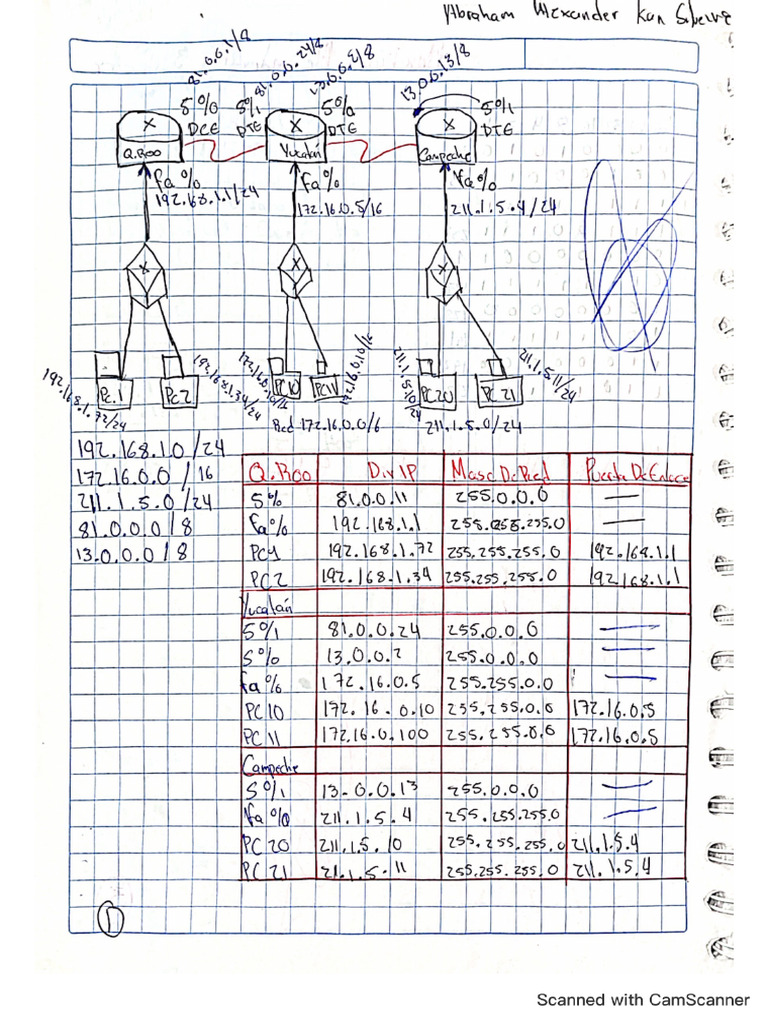 Abraham Alexander Kan
81.0.0.1/8 81.0.0.24/8 13.0.0.2/8 13.0.0.13/8
S0/0 S0/1 S0/0 S0/1
DCE DTE DTE DTE
X X X
Q.Roo Yucatán Campeche
fa 0/0 fa 0/0 fa 0/0
192.168.1.1/24 172.16.0.5/16 211.1.5.4/24
X X X
PC1 PC2 PC10 PC11 PC20 PC21
192.168.1.72/24 192.168.1.34/24 172.16.0.10/16 172.16.0.10/16 211.1.5.10/24 211.1.5.11/24
Red 172.16.0.0/6 211.1.5.0/24
192.168.1.0/24
172.16.0.0/16
211.1.5.0/24
81.0.0.0/8
13.0.0.0/8
Q.Roo Dir IP Masc De Red Puerta De Enlace
S0/0 81.0.0.11 255.0.0.0 —
fa 0/0 192.168.1.1 255.255.255.0 —
PC1 192.168.1.72 255.255.255.0 192.168.1.1
PC2 192.168.1.34 255.255.255.0 192.168.1.1
Yucatán
S0/1 81.0.0.24 255.0.0.0 —
S0/0 13.0.0.2 255.0.0.0 —
fa 0/0 172.16.0.5 255.255.0.0 —
PC10 172.16.0.10 255.255.0.0 172.16.0.5
PC11 172.16.0.100 255.255.0.0 172.16.0.5
Campeche
S0/1 13.0.0.13 255.0.0.0 —
fa 0/0 211.1.5.4 255.255.255.0 —
PC20 211.1.5.10 255.255.255.0 211.1.5.4
PC21 21.1.5.11 255.255.255.0 211.1.5.4
1
Scanned with CamScanner